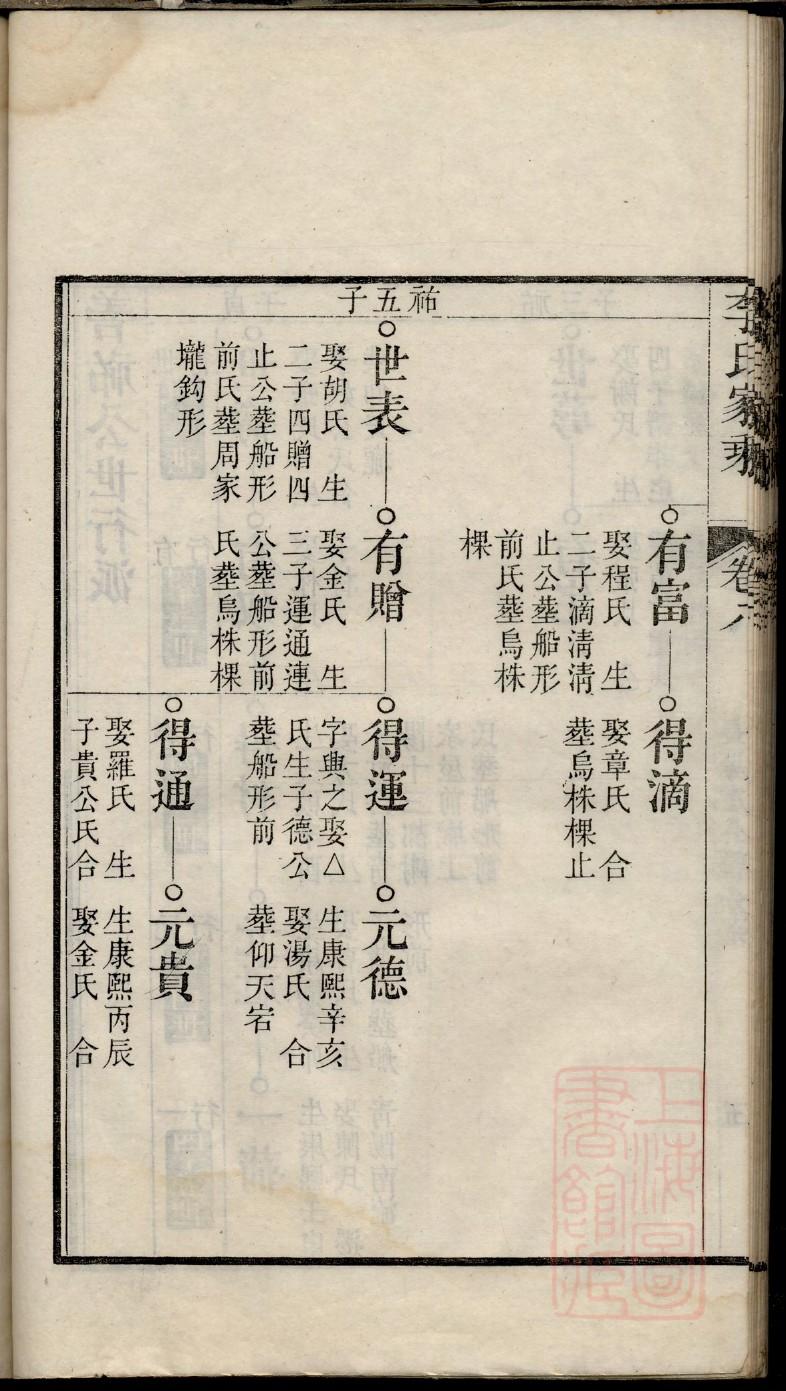 李氏家乘
卷六
有富
娶程氏 生
二子滴清清
止公塟船形
前氏塟烏株
棵
得滴
娶章氏 合
塟烏株棵止
祐五子
世表
娶胡氏 生
二子四贈四
止公塟船形
前氏塟周家
壠鈎形
有贈
娶金氏 生
三子運通連
公塟船形前
氏塟烏株棵
得運
字典之娶△
氏生子德公
塟船形前
元德
生康熙辛亥
娶湯氏 合
塟仰天宕
得通
娶羅氏 生
子貴公氏合
元貴
生康熙丙辰
娶金氏 合
上海圖
書館藏